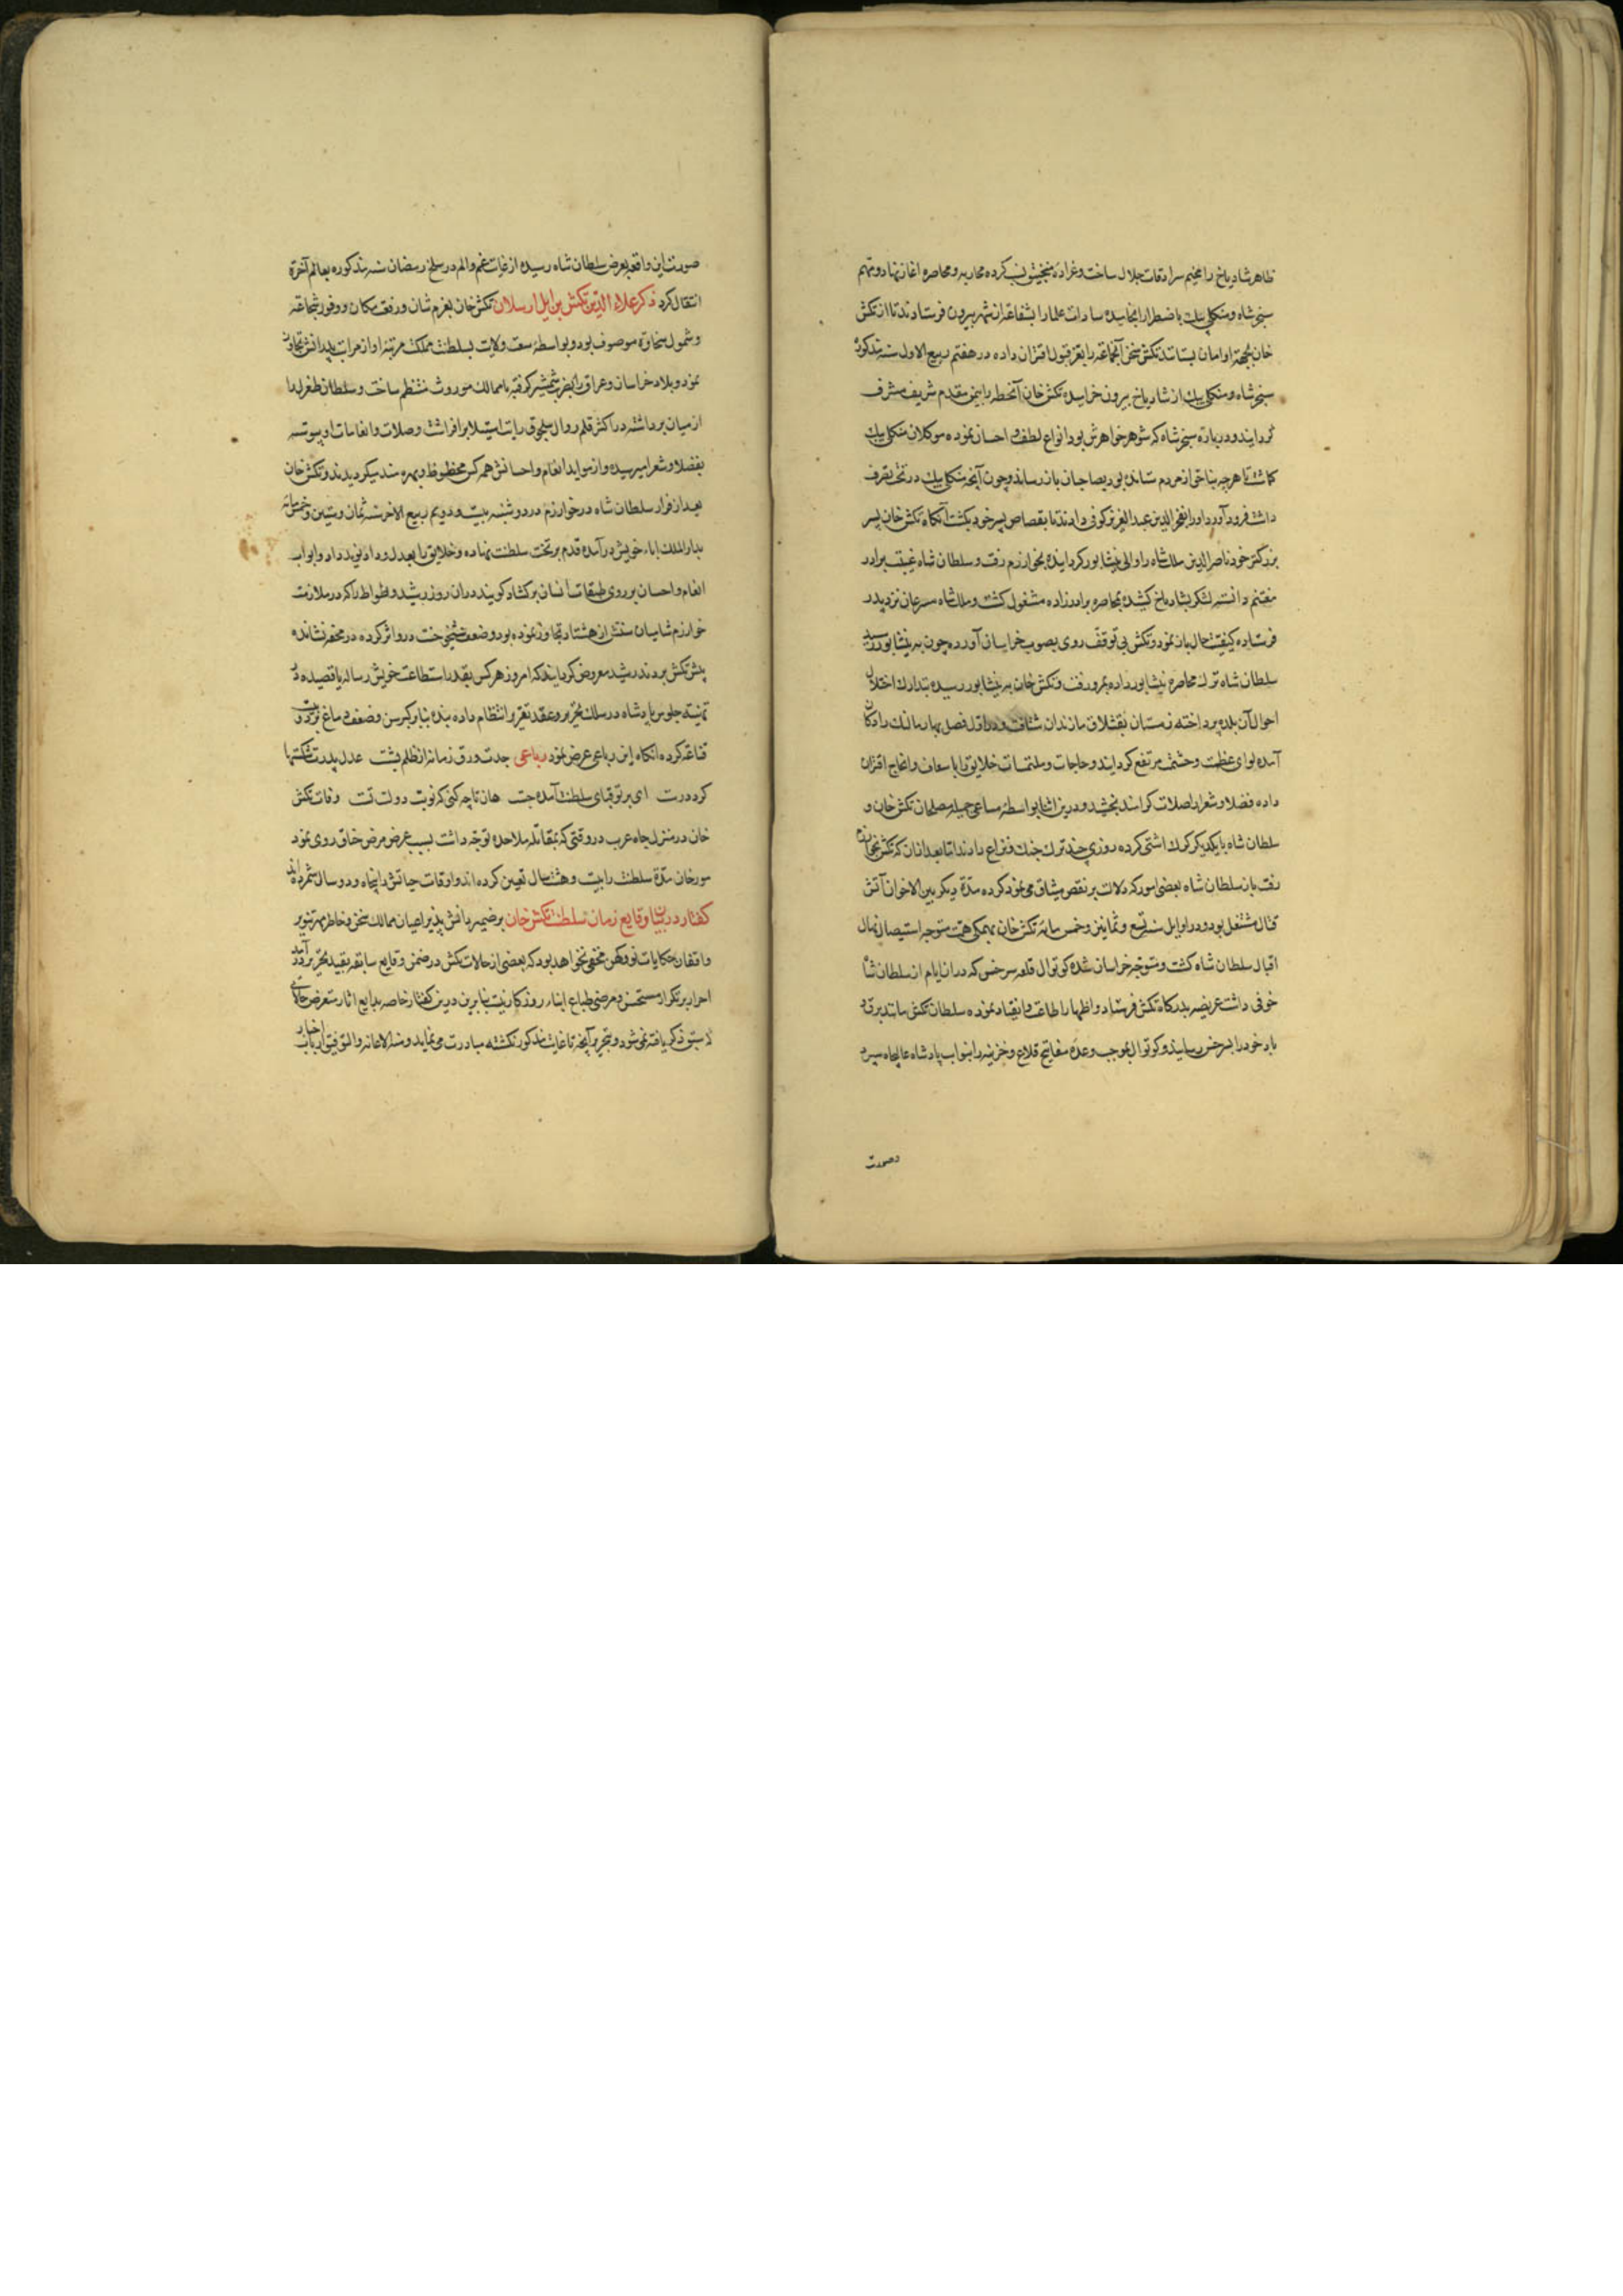 ظاهر شادیاخ را مخیم سرادقات جلال ساخت و عراده و منجنیق نصب کرده محاربه و محاصره آغاز نهاد و مهم
سنجر شاه و منکلی بیک باضطرار انجامیده سادات و علما را بشفاعة از شهر بیرون فرستادند تا از تکش
خان بجهة او امان بستانند تکش سخن آنجماعة را بعز قبول اقتران داده در هفتم ربیع الاول سنه مذکوره
سنجر شاه و منکلی بیک از شادیاخ بیرون خرامیده تکش خان آنخطه را بیمن مقدم شریف مشرف
گردانید و درباره سنجر شاه که شوهر خواهرش بود انواع لطف و احسان نموده موکلان بر منکلی بیک
کماشت تا هر چه بناحق از مردم ستانده بود بصاحبان باز رساند و چون آنچه منکلی بیک در تحت تصرف
داشت فرود آورد او را بفخر الدین عبد العزیز کوفی دادند تا بقصاص پسر خود بکشت آنکاه تکش خان پسر
بزرگتر خود ناصر الدین ملک شاه را والی نیشابور کردانیده بخوارزم رفت و سلطان شاه غیبت برادر
مغتنم دانسته لشکر بشادیاخ کشیده بمحاصره برادرزاده مشغول کشت و ملک شاه مسرعان نزد پدر
فرستاده کیفیت حال باز نمود و تکش بی توقف روی بصوب خراسان آورده چون به نیشابور رسید
سلطان شاه ترک محاصره نیشابور داده بمرو رفت و تکش خان به نیشابور رسیده بتدارک اختلال
احوال آن بلده پرداخته زمستان بقشلاق مازندران شتافت و در اول فصل بهار بالنک رادکان
آمده لوای عظمت و حشمت مرتفع کردانید و حاجات و ملتمسات خلایق را باسعاف و انجاح اقتران
داده فضلا و شعرا را صلات کرامند بخشید و درین اثنا بواسطه مساعی جمیله مصلحان تکش خان و
سلطان شاه با یکدیکر کرک اشتی کرده روزی چند ترک جنک و نزاع دادند اما بعد از ان که تکش بخوارزم
رفت باز سلطان شاه بعضی امور که دلالت بر نقض میثاق می نمود کرده مدة دیکر بین الاخوان آتش
قتال مشتعل بود و در اوایل سنه تسع و ثمانین و خمس مائه تکش خان بهمکی همت متوجه استیصال نهال
اقبال سلطان شاه کشت و متوجه خراسان شده کوتوال قلعه سرخس که در ان ایام از سلطان شاه
خوفی داشت عریضه بدرکاه تکش فرستاد و اظهار اطاعت و انقیاد نموده سلطان تکش مانند برق و
باد خود را بسرخس رسانید و کوتوال بموجب وعده مفاتیح قلاع و خزینه را بنواب پادشاه عالیجاه سپرد
و صورت
صورت این واقعه بعرض سلطان شاه رسیده از غایت غم و الم در سلخ رمضان سنه مذکوره بعالم آخرة
انتقال کرد ذکر علاء الدین تکش بن ایل ارسلان تکش خان بعزم شان و رفعت مکان و وفور شجاعة
و شمول سخاوة موصوف بود و بواسطه سعت ولایت و بسطت مملکت مرتبه او از مراتب پدرانش تجاوز
نمود و بلاد خراسان و عراق را بضرب شمشیر گرفته با ممالک موروث منتظم ساخت و سلطان طغرل را
از میان برداشته در اکثر قلمرو آل سلجوق رایت استیلا برافراشت و صلات و انعامات او پیوسته
بفضلا و شعرا میرسیده و از مواید انعام و احسانش همه کس محظوظ و بهره مند میکردیدند و تکش خان
بعد از فرار سلطان شاه در خوارزم در دوشنبه بیست و دویم ربیع الاخر سنه ثمان و ستین و خمسمائه
بدار الملک اباء خویش درآمده قدم بر تخت سلطنت نهاده و خلایق را بعدل و داد نوید داد و ابواب
انعام و احسان بر روی طبقات انسان برکشاد کویند در ان روز رشید وطواط را که در ملازمت
خوارزم شاهیان سنش از هشتاد تجاوز نموده بود و ضعف شیخوخت در و اثر کرده در محفه نشانده
پیش تکش بردند رشید معروض کردانید که امروز هر کس بقدر استطاعت خویش رساله یا قصیده در
تهنیت جلوس پادشاه در سلک تحریر و عقد تقریر انتظام داده بنده بنابر کبر سن و ضعف دماغ بر دو بیت
قناعة کرده آنکاه این رباعی عرض نمود رباعی جدت ورق زمانه از ظلم بشست عدل پدرت شکستها
کرد درست ای بر تو قبای سلطنت آمده چست هان تا چه کنی که نوبت دولت تست وفات تکش
خان در منزل چاه عرب در وقتی که بمقاتله ملاحده توجه داشت بسبب عرض مرض خناق روی نمود
مورخان مدة سلطنت را بیست و هشت سال تعین کرده اند و اوقات حیاتش را پنجاه و دو سال شمرده اند
کفتار در بیان وقایع زمان سلطنت تکش خان بر ضمیر دانش پذیر اعیان ممالک سخن و خاطر مهر تنویر
واقفان حکایات نو و کهن مخفی نخواهد بود که بعضی از حالات تکش در ضمن وقایع سابقه بقید تحریر درآمد و
احرار بر تکرار مستحسن و مرضی طباع ابناء روزکار نیست بنابرین درین کفتار خاصه بدایع اثار متعرض حکایتی
که سبق ذکر یافته نمی شود و بتحریر آنچه تا غایت مذکور نکشته مبادرت می نماید و منه الاعانه والتوفیق ارباب اخبار